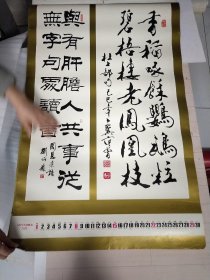 香稻啄餘鸚鵡粒
碧梧棲老鳳凰枝
杜詩
與有肝膽人共事從
無字句處讀書
周恩來
1 2 3 4 5 6 7 8 9 10 11 12 13 14 15 16 17 18 19 20 21 22 23 24 25 26 27 28 29 30